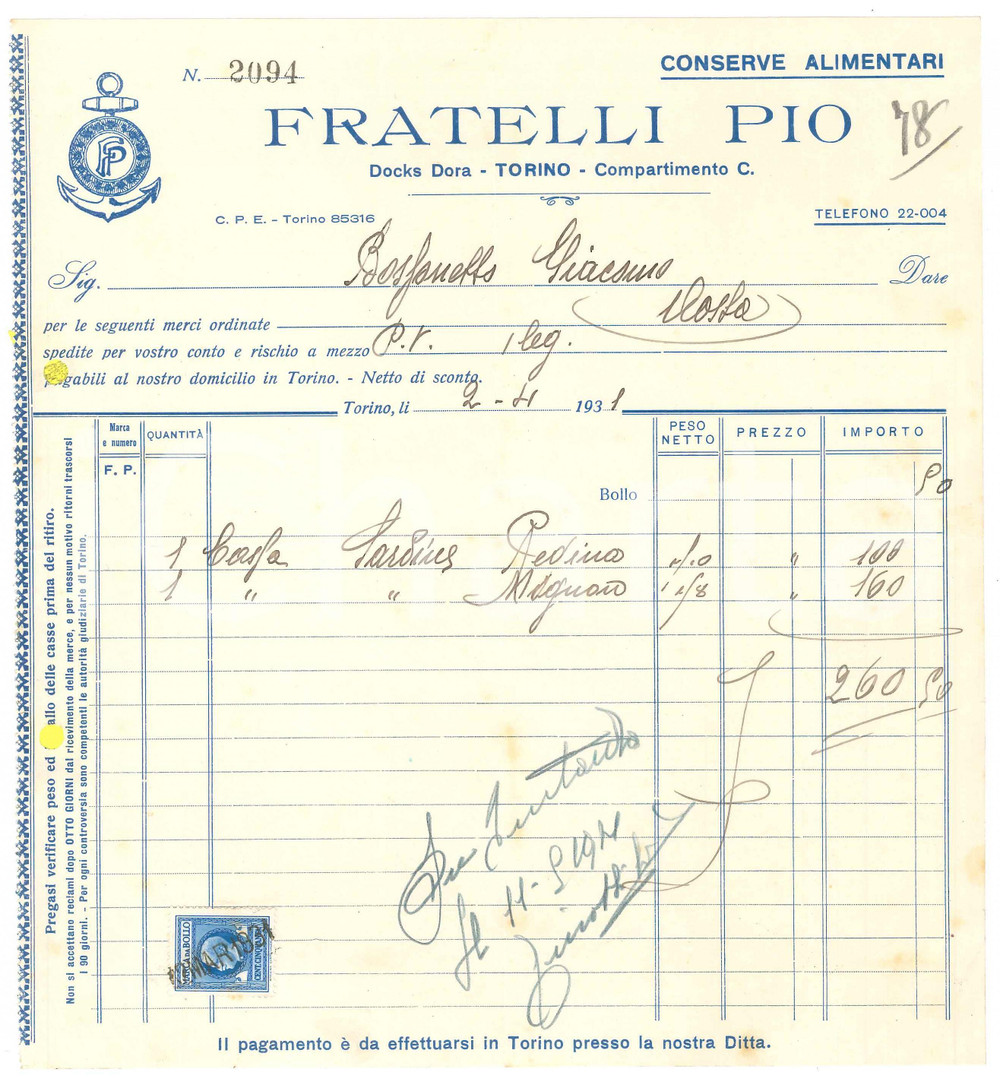 N. 2094
CONSERVE ALIMENTARI
FRATELLI PIO
78
Docks Dora - TORINO - Compartimento C.
FP
C. P. E. - Torino 85316
TELEFONO 22-004
Sig. Giacomo Dare
per le seguenti merci ordinate
spedite per vostro conto e rischio a mezzo P.V. 1 leg.
pagabili al nostro domicilio in Torino. - Netto di sconto.
Torino, li 2 - 4 1931
Marca e numero QUANTITÀ PESO NETTO PREZZO IMPORTO
F. P.
Bollo 50
1 Cassa Sardine Pedina " 100
1 " " Mignon " 160
260 50
11-5-1931
MARCA DA BOLLO
CENT. CINQUANTA
MAR 1931
Pregasi verificare peso ed allo delle casse prima del ritiro.
Non si accettano reclami dopo OTTO GIORNI dal ricevimento della merce, e per nessun motivo ritorni trascorsi
i 90 giorni. - Per ogni controversia sono competenti le autorità giudiziarie di Torino.
Il pagamento è da effettuarsi in Torino presso la nostra Ditta.